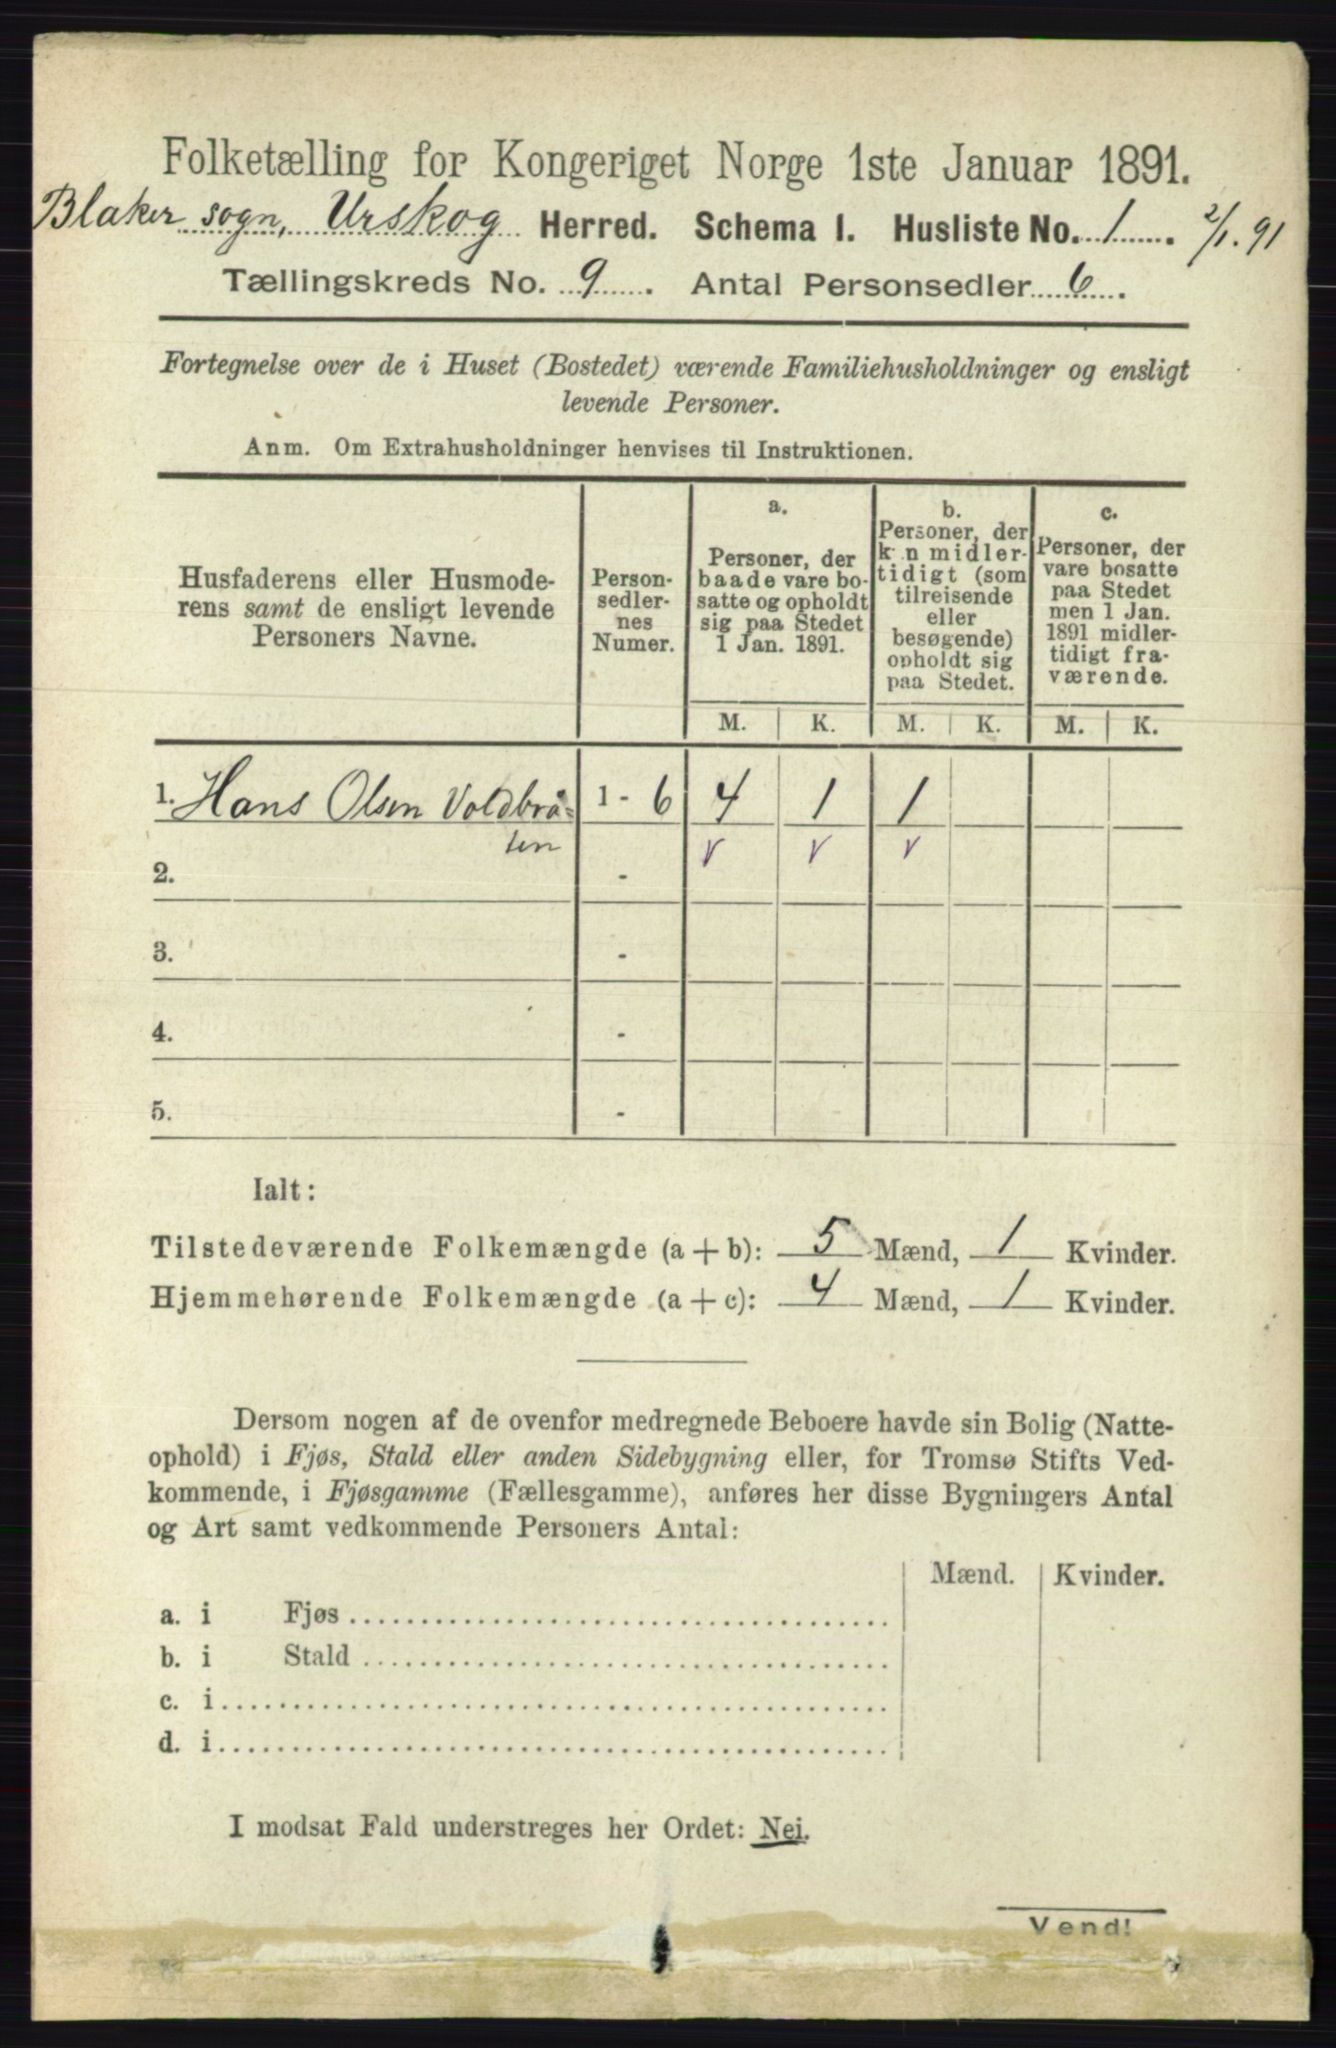 Folketælling for Kongeriget Norge 1ste Januar 1891.
Blaker sogn, Urskog Herred. Schema 1. Husliste No. 1. 2/1. 91
Tællingskreds No. 9. Antal Personsedler 6.
Fortegnelse over de i Huset (Bostedet) værende Familiehusholdninger og ensligt
levende Personer.
Anm. Om Extrahusholdninger henvises til Instruktionen.
Husfaderens eller Husmode-
rens samt de ensligt levende
Personers Navne.
Person-
sedler-
nes
Numer.
a.
Personer, der
baade vare bo-
satte og opholdt
sig paa Stedet
1 Jan. 1891.
b.
Personer, der
kun midler-
tidigt (som
tilreisende
eller
besøgende)
opholdt sig
paa Stedet.
c.
Personer, der
vare bosatte
paa Stedet
men 1 Jan.
1891 midler-
tidigt fra-
værende.
M. K. M. K. M. K.
1. Hans Olsen Voldbrå= 1 - 6 4 1 1
ten v v v
2. -
3. -
4. -
5. -
Ialt:
Tilstedeværende Folkemængde (a + b): 5 Mænd, 1 Kvinder.
Hjemmehørende Folkemængde (a + c): 4 Mænd, 1 Kvinder.
Dersom nogen af de ovenfor medregnede Beboere havde sin Bolig (Natte-
ophold) i Fjøs, Stald eller anden Sidebygning eller, for Tromsø Stifts Ved-
kommende, i Fjøsgamme (Fællesgamme), anføres her disse Bygningers Antal
og Art samt vedkommende Personers Antal:
Mænd. Kvinder.
a. i Fjøs
b. i Stald
c. i
d. i
I modsat Fald understreges her Ordet: Nei.
Vend!